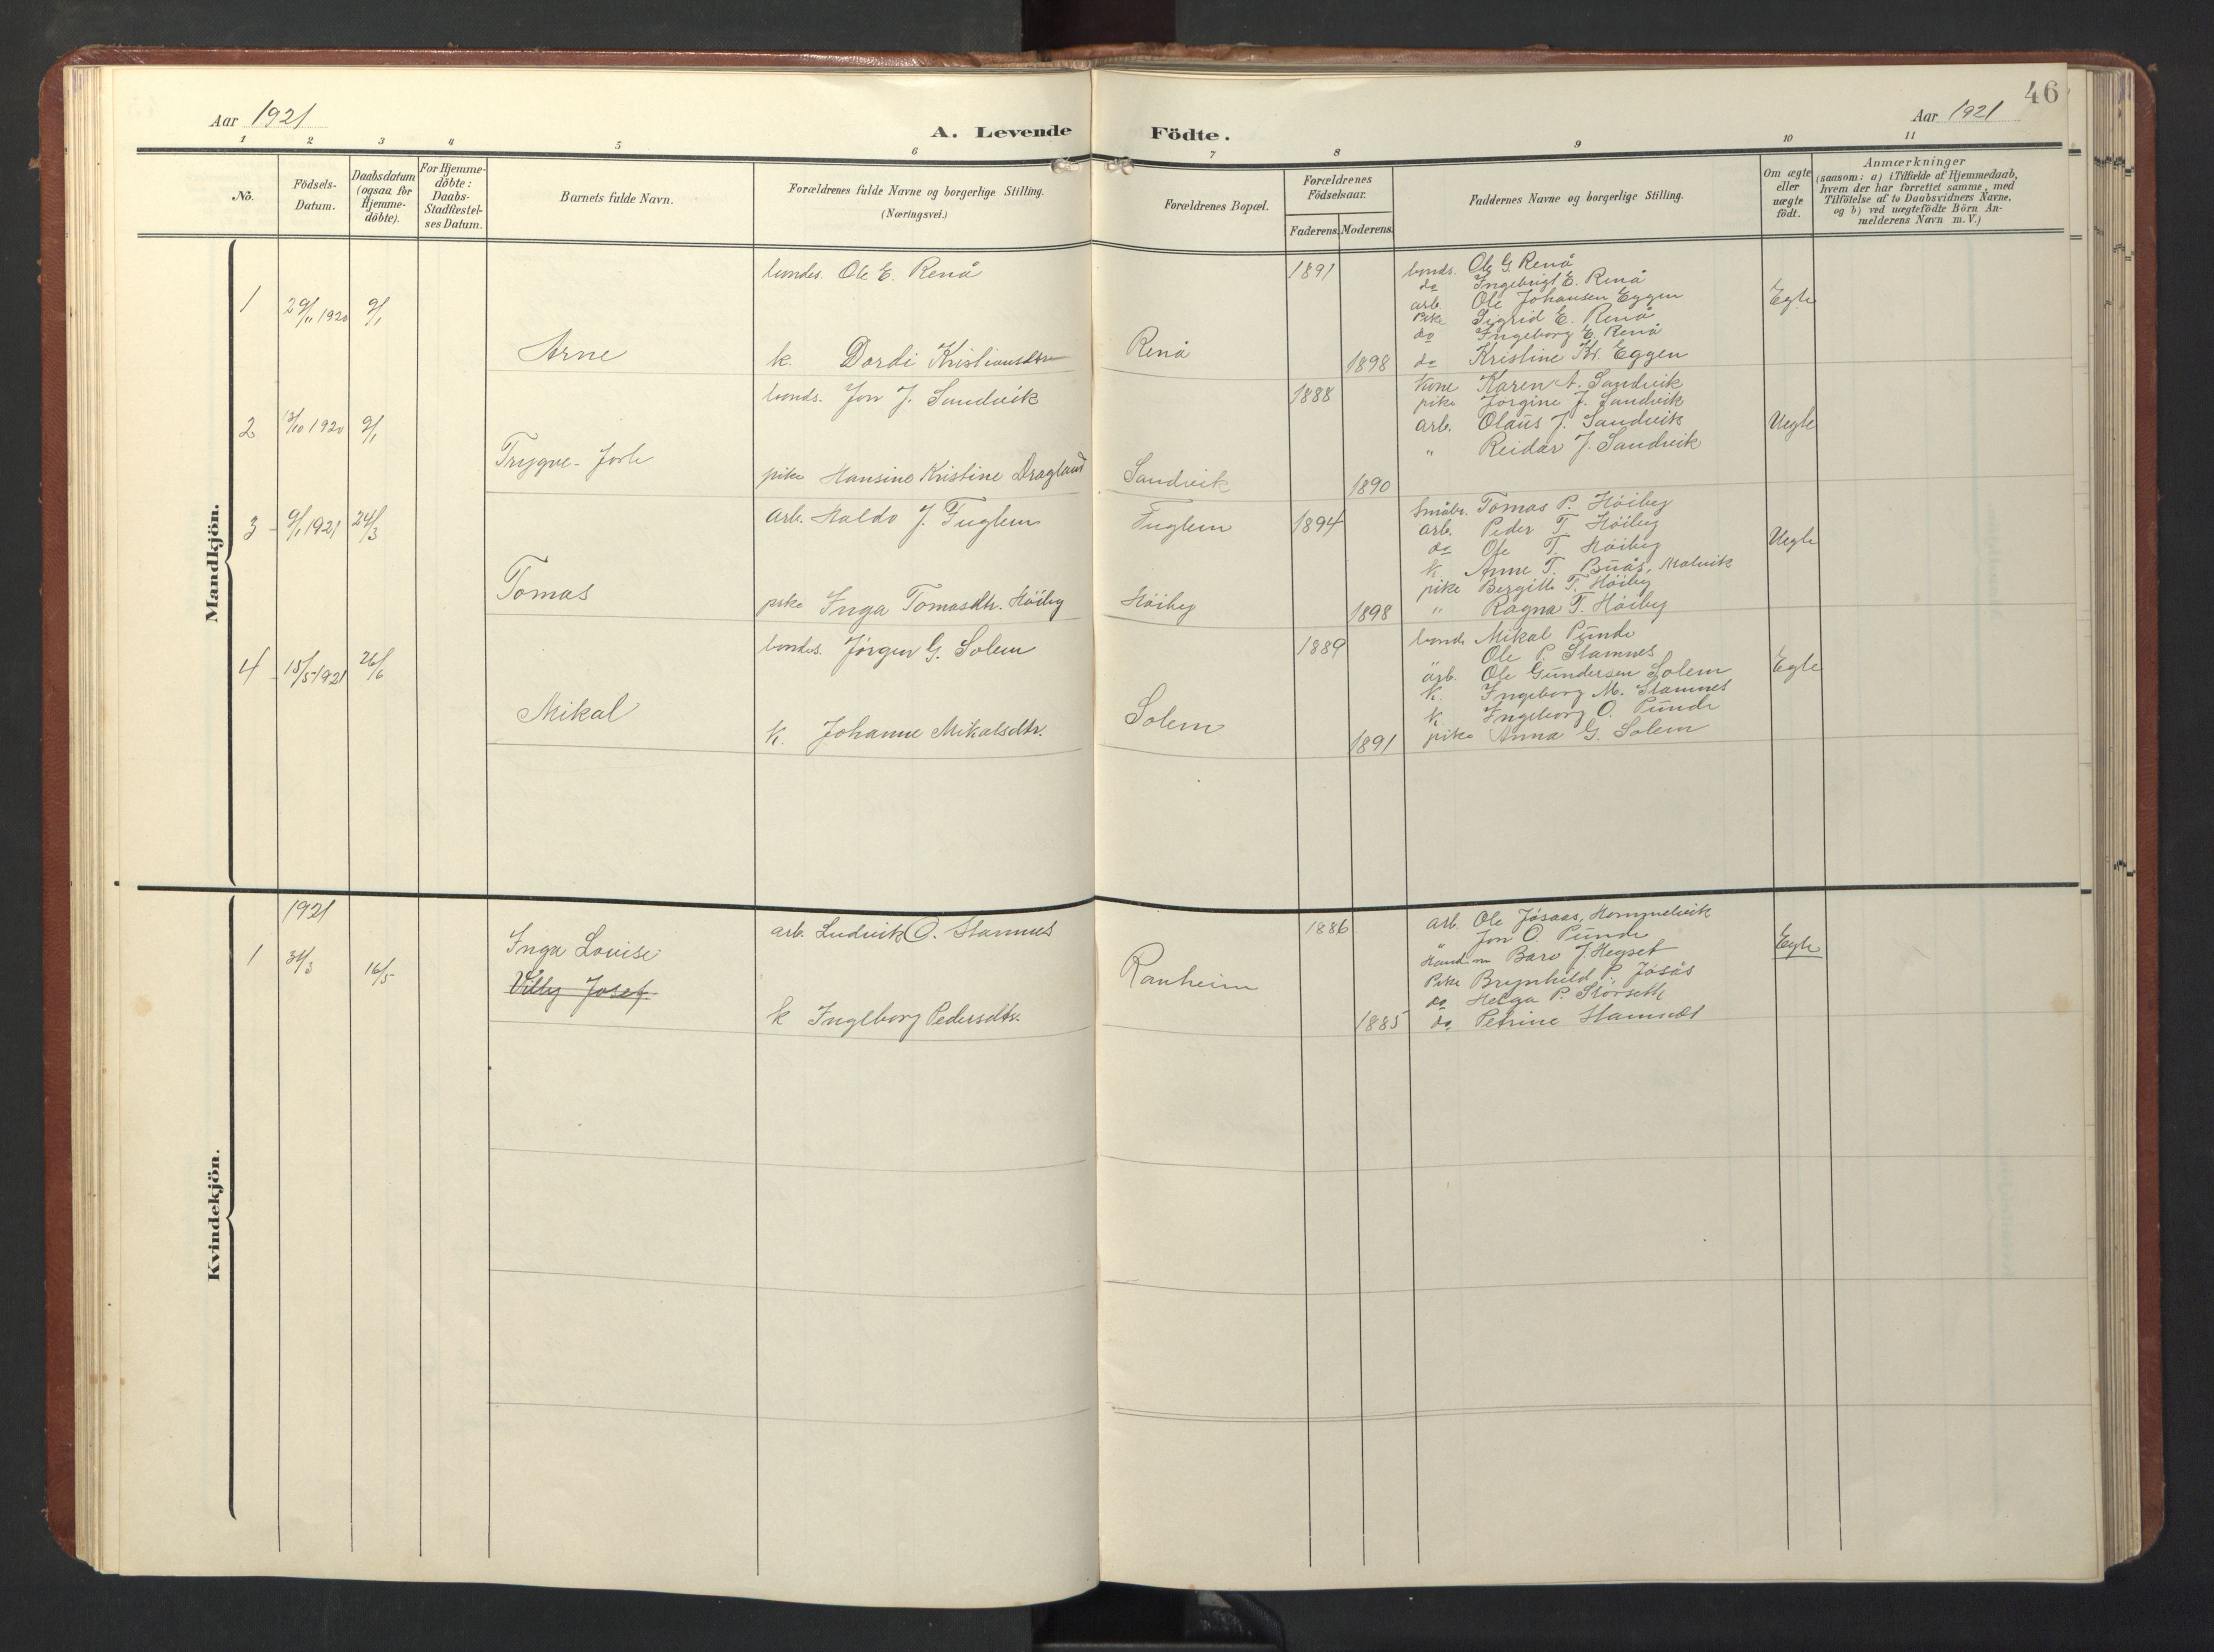 46
Aar 1921
A. Levende Födte.
Aar 1921
1 2 3 4 5 6 7 8 9 10 11
No.
Födsels-Datum.
Daabsdatum (ogsaa for Hjemme-döbte).
For Hjemme-döbte: Daabs-Stadfæstel-ses Datum.
Barnets fulde Navn.
Forældrenes fulde Navne og borgerlige Stilling.
(Næringsvei.)
Forældrenes Bopæl.
Forældrenes Födselsaar.
Faderens. Moderens.
Faddernes Navne og borgerlige Stilling.
Om ægte eller uægte födt.
Anmærkninger
(saasom: a) i Tilfælde af Hjemmedaab,
hvem der har forrettet samme, med
Tilföielse af to Daabsvidners Navne,
og b) ved uægtefödte Börn An-
melderens Navn m. V.)
Mandkjön.
1 29/11 1920 9/1
Arne
bondes. Ole E. Renå
k. Dordi Kristiansdtr
Renå
1891
1898
bonds. Ole G. Renå
do Ingebrigt E. Renå
arb. Ole Johansen Eggen
Pike Sigrid E. Renå
do Ingeborg E. Renå
do Kristine Kr. Eggen
Egte
2 13/10 1920 9/1
Trygve-
bonds. Jon J. Sandvik
pike Hansine Kristine Dragland
Sandvik
1888
1890
kone Karen A. Sandvik
pike Jørgine J. Sandvik
arb. Olaus J. Sandvik
" Reidar J. Sandvik
Uegte
3 9/1 1921 24/3
Tomas
arb. Haldo J. Fuglem
pike Inga Tomasdtr. Höiby
Fuglem
Höiby
1894
1898
Småbr. Tomas P. Höiby
arb. Peder T. Höiby
do Ole T. Höiby
K. Anne T. Buås, Malvik
pike Bergitte T. Höiby
" Ragna T. Höiby
Uegte
4 15/5 1921 26/6
Mikal
bondes. Jørgen G. Solem
K. Johanne Mikalsdtr.
Solem
1889
1891
bonds Mikal Punde
Ole P. Stamnes
arb. Ole Gundersen Solem
K. Ingeborg M. Stamnes
K. Ingeborg O. Punde
pike Anna G. Solem
Egte
Kvindekjön.
1921
1 31/3 16/5
Inga Louise
Villy Josef
arb. Ludvik O. Stamnes
k Ingeborg Pedersdtr.
Ranheim
1886
1885
arb. Ole Jøsaas, Hommelvik
" Jon O. Punde
Baro J. Hegset
Pike Brynhild P. Jøsås
do Helga P. Storseth
do Petrine Stamnes
Egte